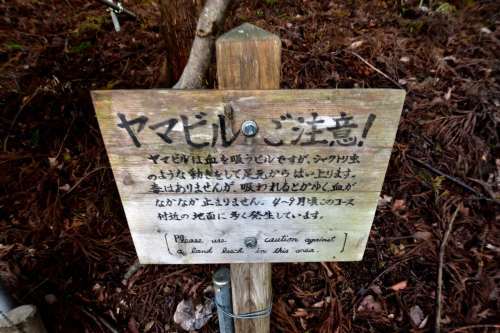 ヤマビルにご注意!
ヤマビルは血を吸うビルですが、シャクトリ虫
のような動きをして足元からはい上ります。
毒はありませんが、吸われるとかゆく血が
なかなか止まりません。4~9月頃このコース
付近の地面に多く発生しています。
[Please use caution against
a land leech in this area.]